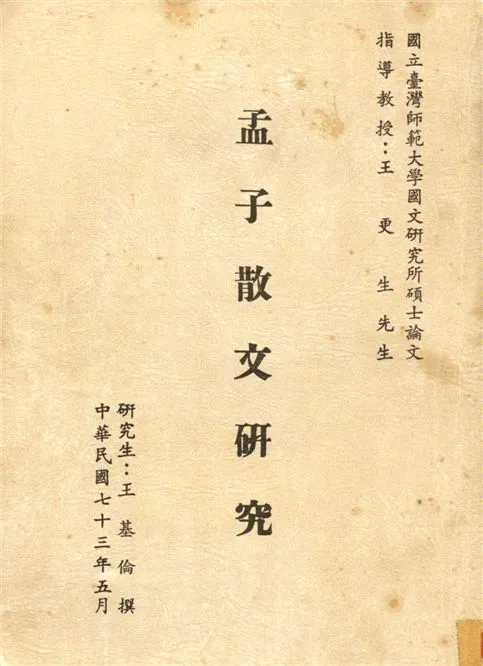 國立臺灣師範大學國文硏究所碩士論文
指導教授：王更生先生
孟子散文硏究
硏究生：王基倫撰
中華民國七十三年五月